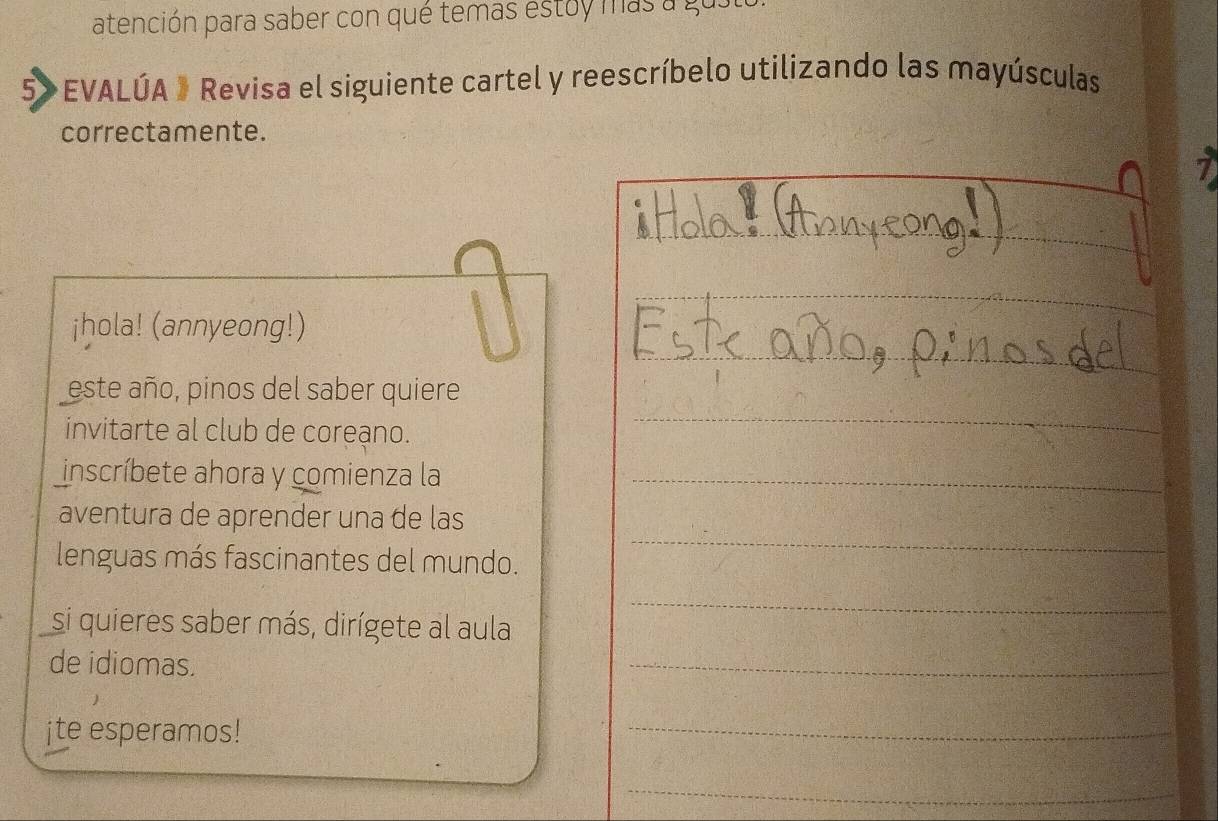 atención para saber con qué temas estoy más a gusto.
5 EVALÚA Revisa el siguiente cartel y reescríbelo utilizando las mayúsculas
correctamente.
7
¡hola! (annyeong!)
este año, pinos del saber quiere
invitarte al club de coreano.
inscríbete ahora y comienza la
aventura de aprender una de las
lenguas más fascinantes del mundo.
si quieres saber más, dirígete al aula
de idiomas.
¡te esperamos!
¡Hola! (Annyeong!)
Este año, pinos del